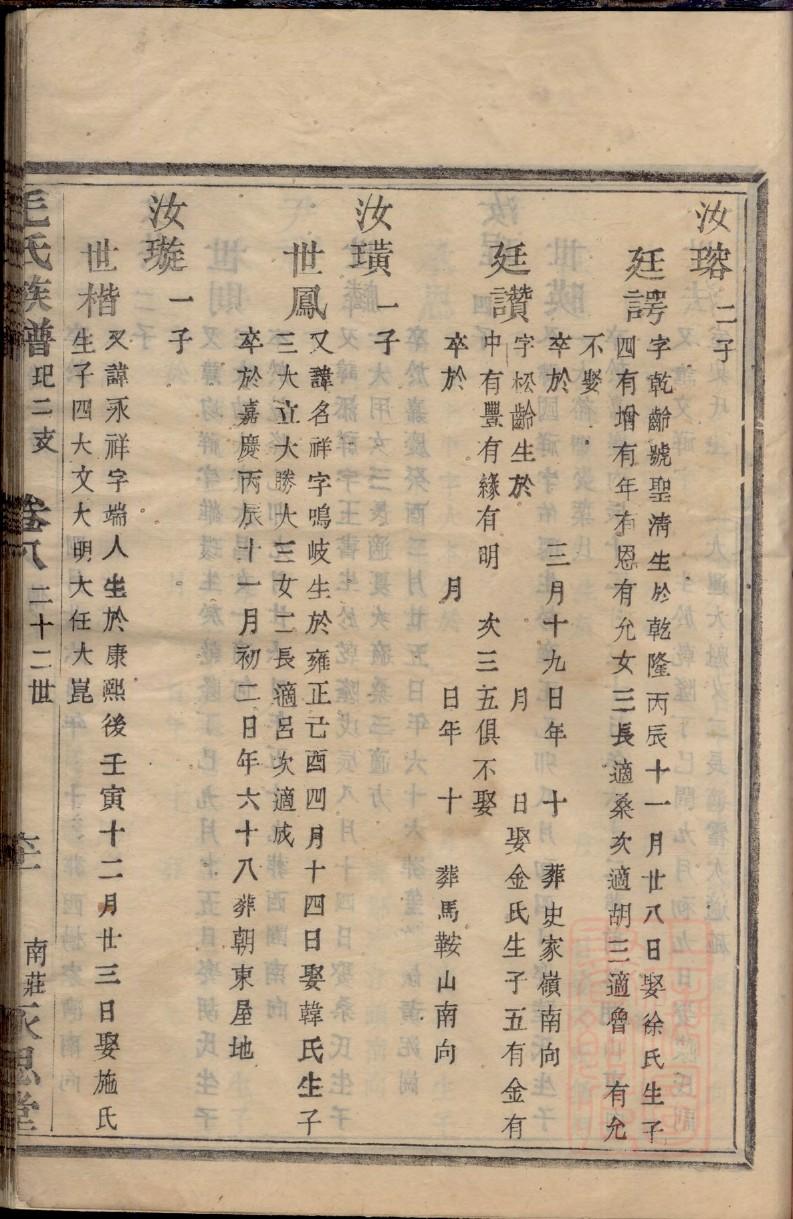 汝瑢 二子
廷諤 字乾齡號聖淸生於乾隆丙辰十一月廿八日娶徐氏生子
四有增有年有恩有允女三長適桑次適胡三適魯 有允
不娶
卒於 三月十九日年 十 葬史家嶺南向
廷讚 字松齡生於 月 日娶金氏生子五有金有
中有豐有緣有明 次三五俱不娶
卒於 月 日年 十 葬馬鞍山南向
汝璜 一子
世鳳 又諱名祥字鳴岐生於雍正己酉四月十四日娶韓氏生子
三大立大勝大三女二長適呂次適成
卒於嘉慶丙辰十一月初二日年六十八葬朝東屋地
汝璇 一子
世楷 又諱永祥字端人生於康熙後壬寅十二月廿三日娶施氏
生子四大文大明大任大崑
毛氏族譜 圯二支 卷八 二十二世 南莊永思堂